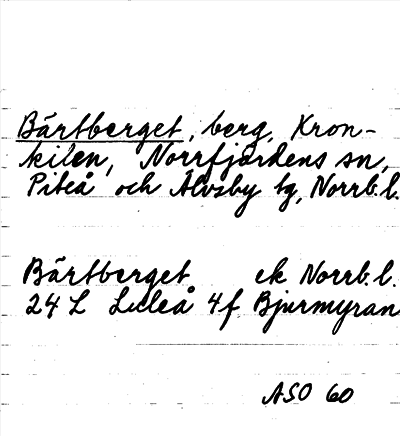 Bärtberget, berg, Kron-
kilen, Norrfjärdens sn,
Piteå och Älvsby tg, Norrb. l.
Bärtberget ek Norrb. l.
24 L Luleå 4f Bjurmyran
ASO 60